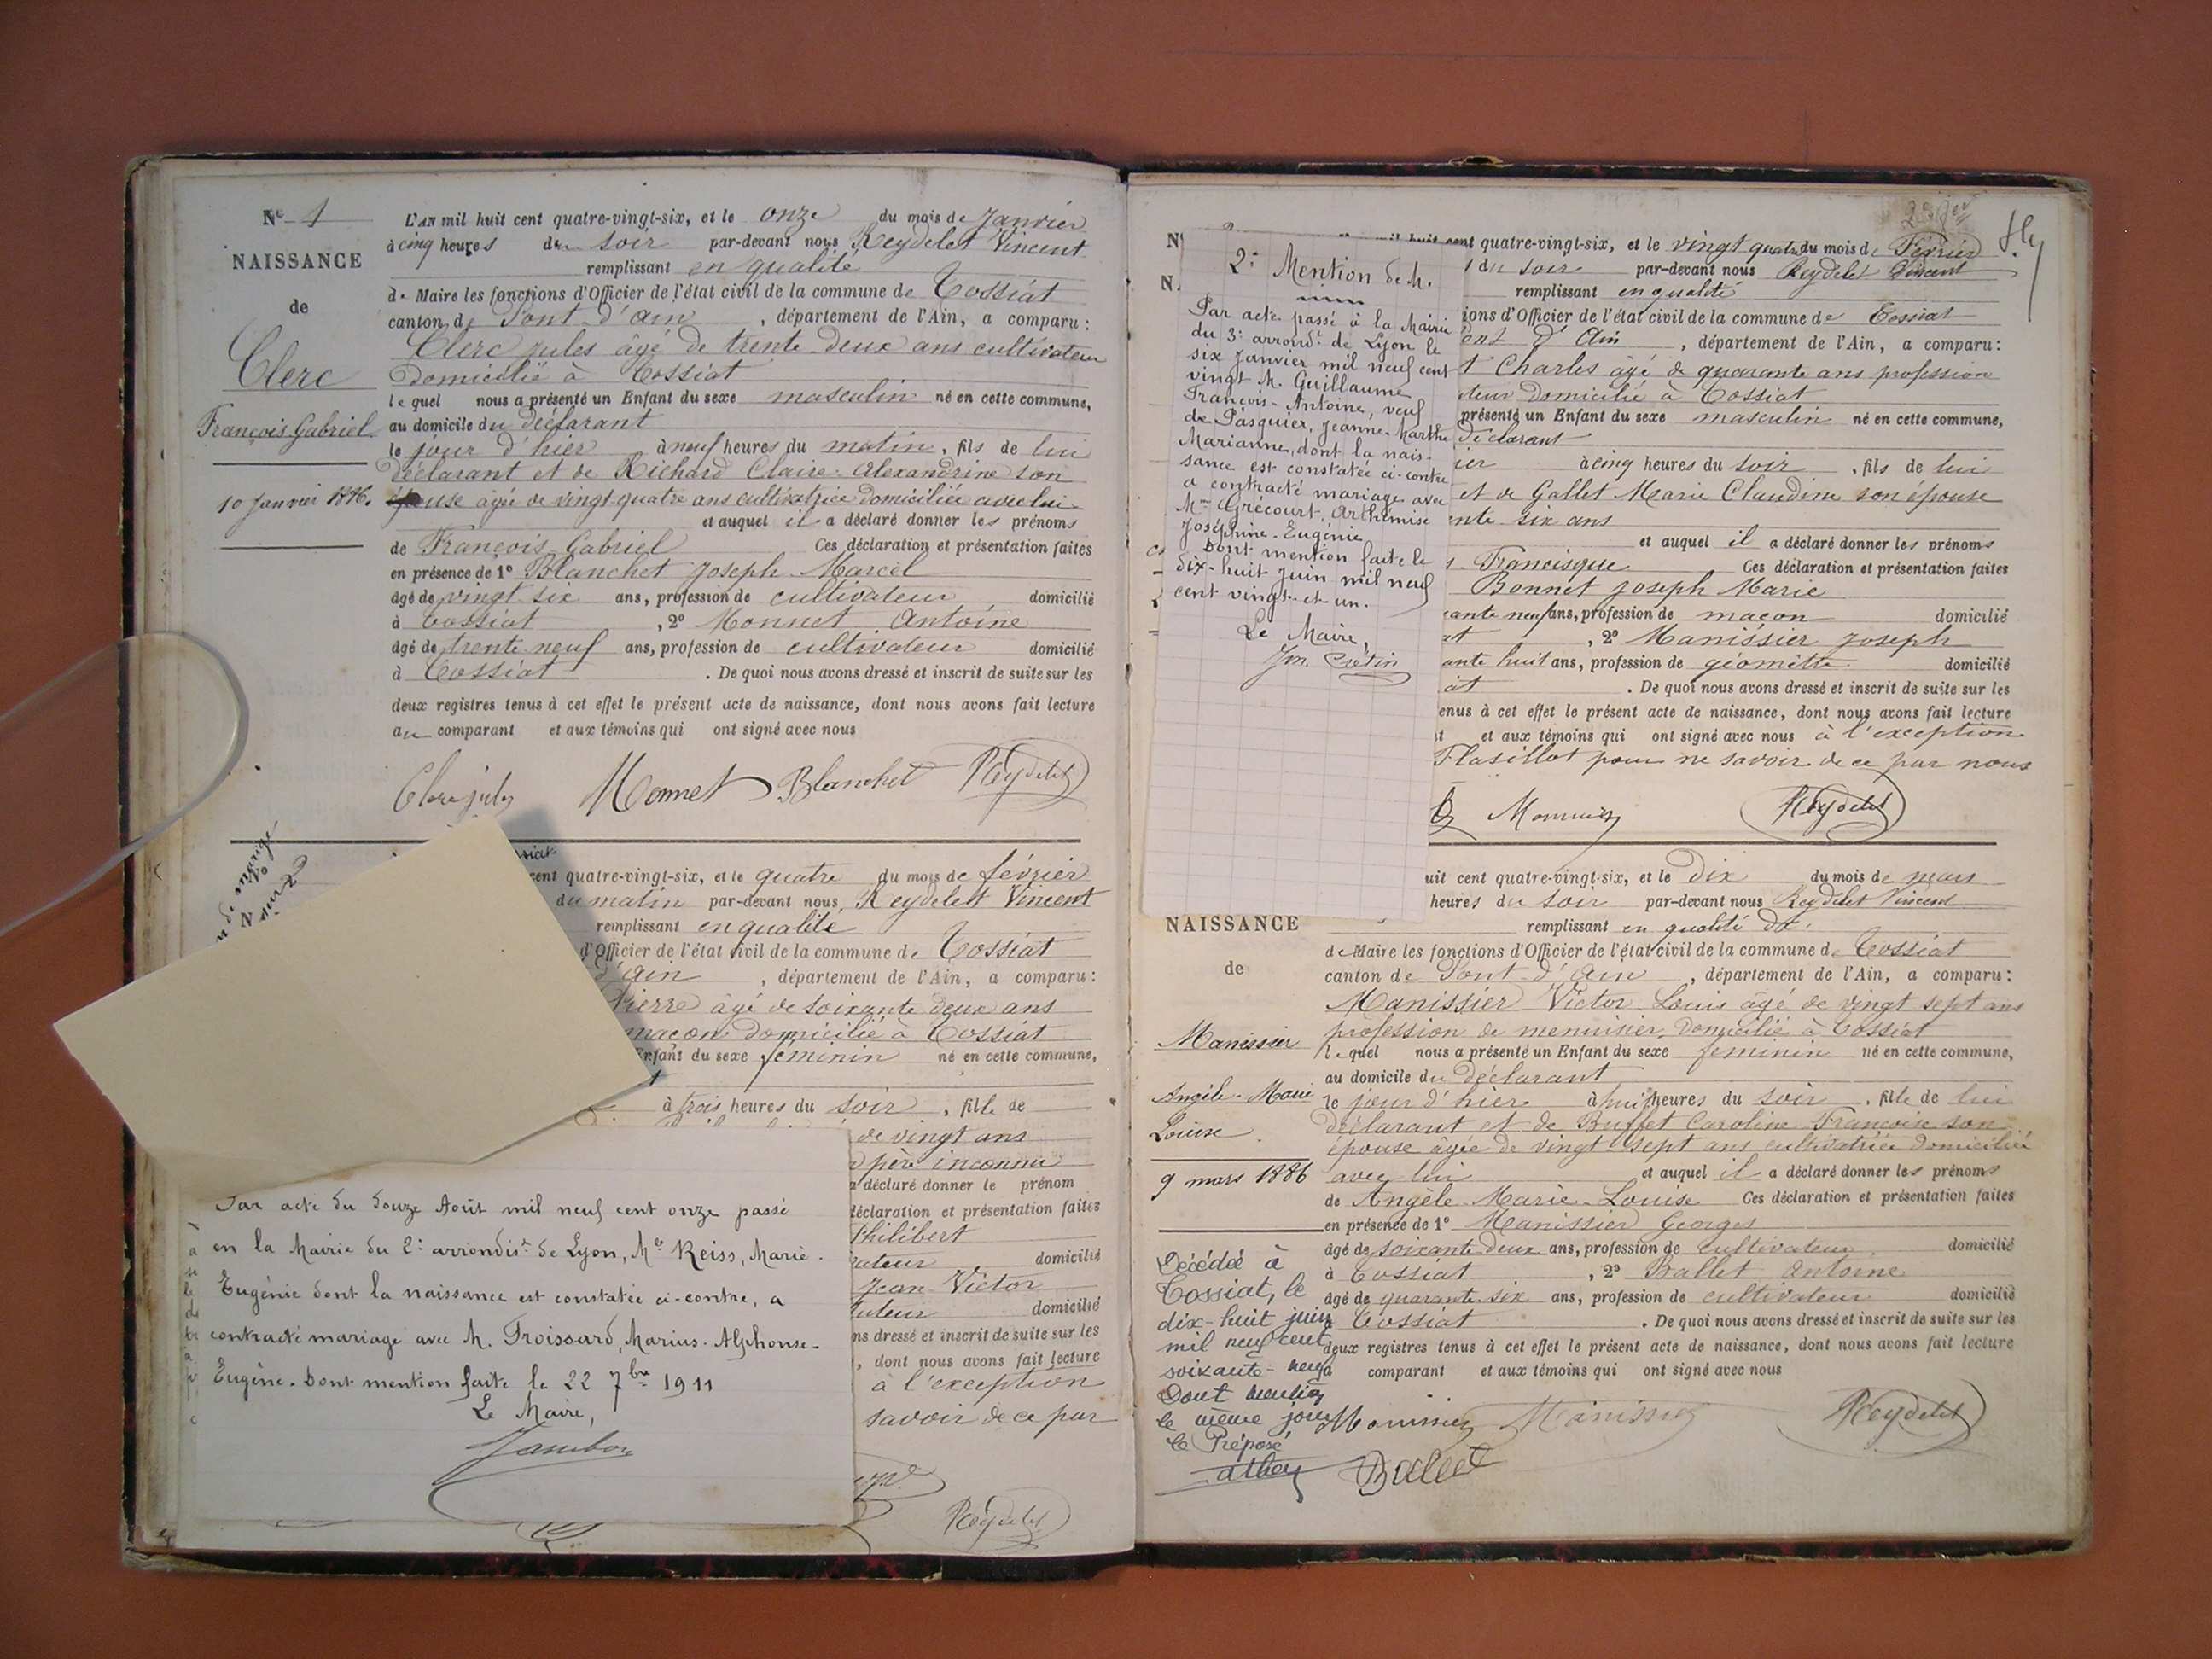 N° 1
NAISSANCE
de
Clerc
François Gabriel
10 Janvier 1886.
L'AN mil huit cent quatre-vingt-six, et le onze du mois de Janvier
à cinq heures du soir par-devant nous Reydelet Vincent
remplissant en qualité
de Maire les fonctions d'Officier de l'état civil de la commune de Tossiat
canton de Pont d'ain, département de l'Ain, a comparu :
Clerc jules âgé de trente deux ans cultivateur
domicilié à Tossiat
lequel nous a présenté un Enfant du sexe masculin né en cette commune,
au domicile du déclarant
le jour d'hier à neuf heures du matin, fils de lui
déclarant et de Richard Claire Alexandrine son
épouse âgée de vingt quatre ans cultivatrice domiciliée avec lui
et auquel il a déclaré donner les prénoms
de François Gabriel Ces déclaration et présentation faites
en présence de 1° Blanchet Joseph Marcel
âgé de vingt six ans, profession de cultivateur domicilié
à Tossiat, 2° Monnet Antoine
âgé de trente neuf ans, profession de cultivateur domicilié
à Tossiat. De quoi nous avons dressé et inscrit de suite sur les
deux registres tenus à cet effet le présent acte de naissance, dont nous avons fait lecture
au comparant et aux témoins qui ont signé avec nous
Clerc jules Monnet Blanchet Reydelet
de mariage
N° sur 2
cent quatre-vingt-six, et le quatre du mois de février
du matin par-devant nous Reydelet Vincent
remplissant en qualité
d'Officier de l'état civil de la commune de Tossiat
d'ain, département de l'Ain, a comparu :
Pierre âgé de soixante deux ans
maçon domicilié à Tossiat
Enfant du sexe féminin né en cette commune,
à trois heures du soir, fille de
de vingt ans
père inconnu
a déclaré donner le prénom
déclaration et présentation faites
Philibert
domicilié
Jean Victor
domicilié
ns dressé et inscrit de suite sur les
, dont nous avons fait lecture
à l'exception
savoir de ce par
Reydelet
Par acte du douze Août mil neuf cent onze passé
en la Mairie du 2e arrondist de Lyon, Mlle Reiss, Marie-
Eugénie dont la naissance est constatée ci-contre, a
contracté mariage avec M. Froissard, Marius-Alphonse-
Eugène. Dont mention faite le 22 7bre 1911
Le Maire,
Jambon
2e Mention de M.
Par acte passé à la Mairie
du 3e arrondt de Lyon le
six janvier mil neuf cent
vingt M. Guillaume
François-Antoine, veuf
de Pasquier, Jeanne-Marthe
Marianne, dont la nais-
sance est constatée ci-contre
a contracté mariage avec
Mme Grécourt, Arthémise
Joséphine-Eugénie
Dont mention faite le
dix-huit juin mil neuf
cent vingt-et-un.
Le Maire,
Jm. Crétin
cent quatre-vingt-six, et le vingt quatre du mois de Février
du soir par-devant nous Reydelet Vincent
remplissant en qualité
ions d'Officier de l'état civil de la commune de Tossiat
ont d'Ain, département de l'Ain, a comparu :
t Charles âgé de quarante ans profession
teur domicilié à Tossiat
présenté un Enfant du sexe masculin né en cette commune,
déclarant
ier à cinq heures du soir, fils de lui
et de Gallet Marie Claudine son épouse
ente six ans
et auquel il a déclaré donner les prénoms
Francisque Ces déclaration et présentation faites
Bonnet Joseph Marie
ante neuf ans, profession de maçon domicilié
at, 2° Manissier Joseph
ante huit ans, profession de géomètre domicilié
at. De quoi nous avons dressé et inscrit de suite sur les
enus à cet effet le présent acte de naissance, dont nous avons fait lecture
t et aux témoins qui ont signé avec nous à l'exception
Flasillot pour ne savoir de ce par nous
Reydelet
NAISSANCE
de
Manissier
Angèle-Marie
Louise
9 mars 1886
uit cent quatre-vingt-six, et le dix du mois de mars
heures du soir par-devant nous Reydelet Vincent
remplissant en qualité de
de Maire les fonctions d'Officier de l'état civil de la commune de Tossiat
canton de Pont d'Ain, département de l'Ain, a comparu :
Manissier Victor Louis âgé de vingt sept ans
profession de menuisier domicilié à Tossiat
lequel nous a présenté un Enfant du sexe féminin né en cette commune,
au domicile du déclarant
le jour d'hier à huit heures du soir, fille de lui
déclarant et de Buffet Caroline Françoise son
épouse âgée de vingt-sept ans cultivatrice domiciliée
avec lui et auquel il a déclaré donner les prénoms
de Angèle-Marie-Louise Ces déclaration et présentation faites
en présence de 1° Manissier Georges
âgé de soixante deux ans, profession de cultivateur domicilié
à Tossiat, 2° Ballet Antoine
âgé de quarante six ans, profession de cultivateur domicilié
à Tossiat. De quoi nous avons dressé et inscrit de suite sur les
deux registres tenus à cet effet le présent acte de naissance, dont nous avons fait lecture
comparant et aux témoins qui ont signé avec nous
Manissier Manissier Reydelet
Ballet
Décédée à
Tossiat, le
dix-huit juin
mil neuf cent
soixante-neuf
Dont mention
le même jour
Le Préposé